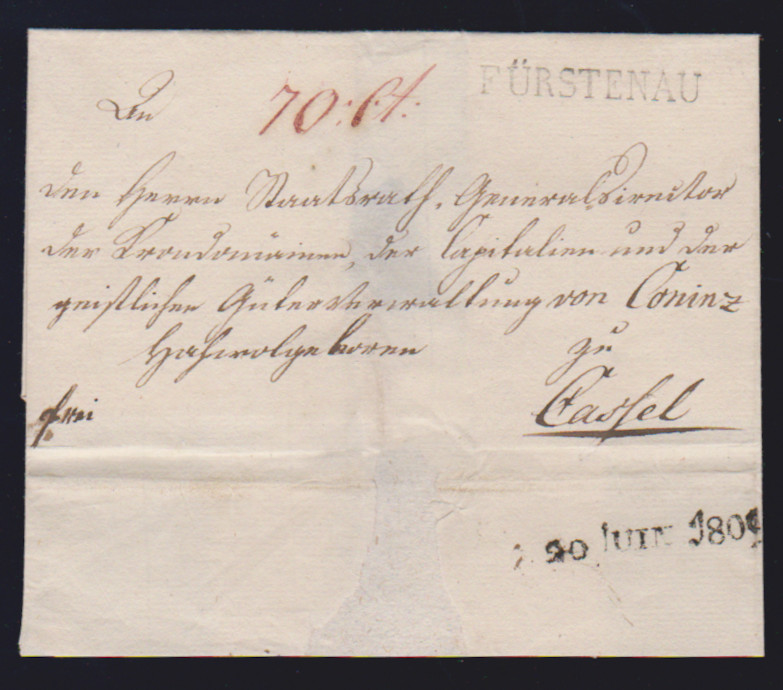 FÜRSTENAU
An
70: Ct:
den Herrn Staatsrath, Generaldirector
der Krondomainen, der Capitalien und der
geistlichen Güterverwaltung von Coninx
Hochwolgeboren
zu
Cassel
frei
20 JUIN 1809